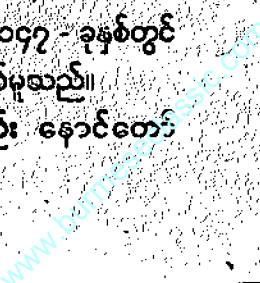 ၁၄၇ - ခုနှစ်တွင်
မူသည်။
နောင်တော်
www.burmeseclassic.com